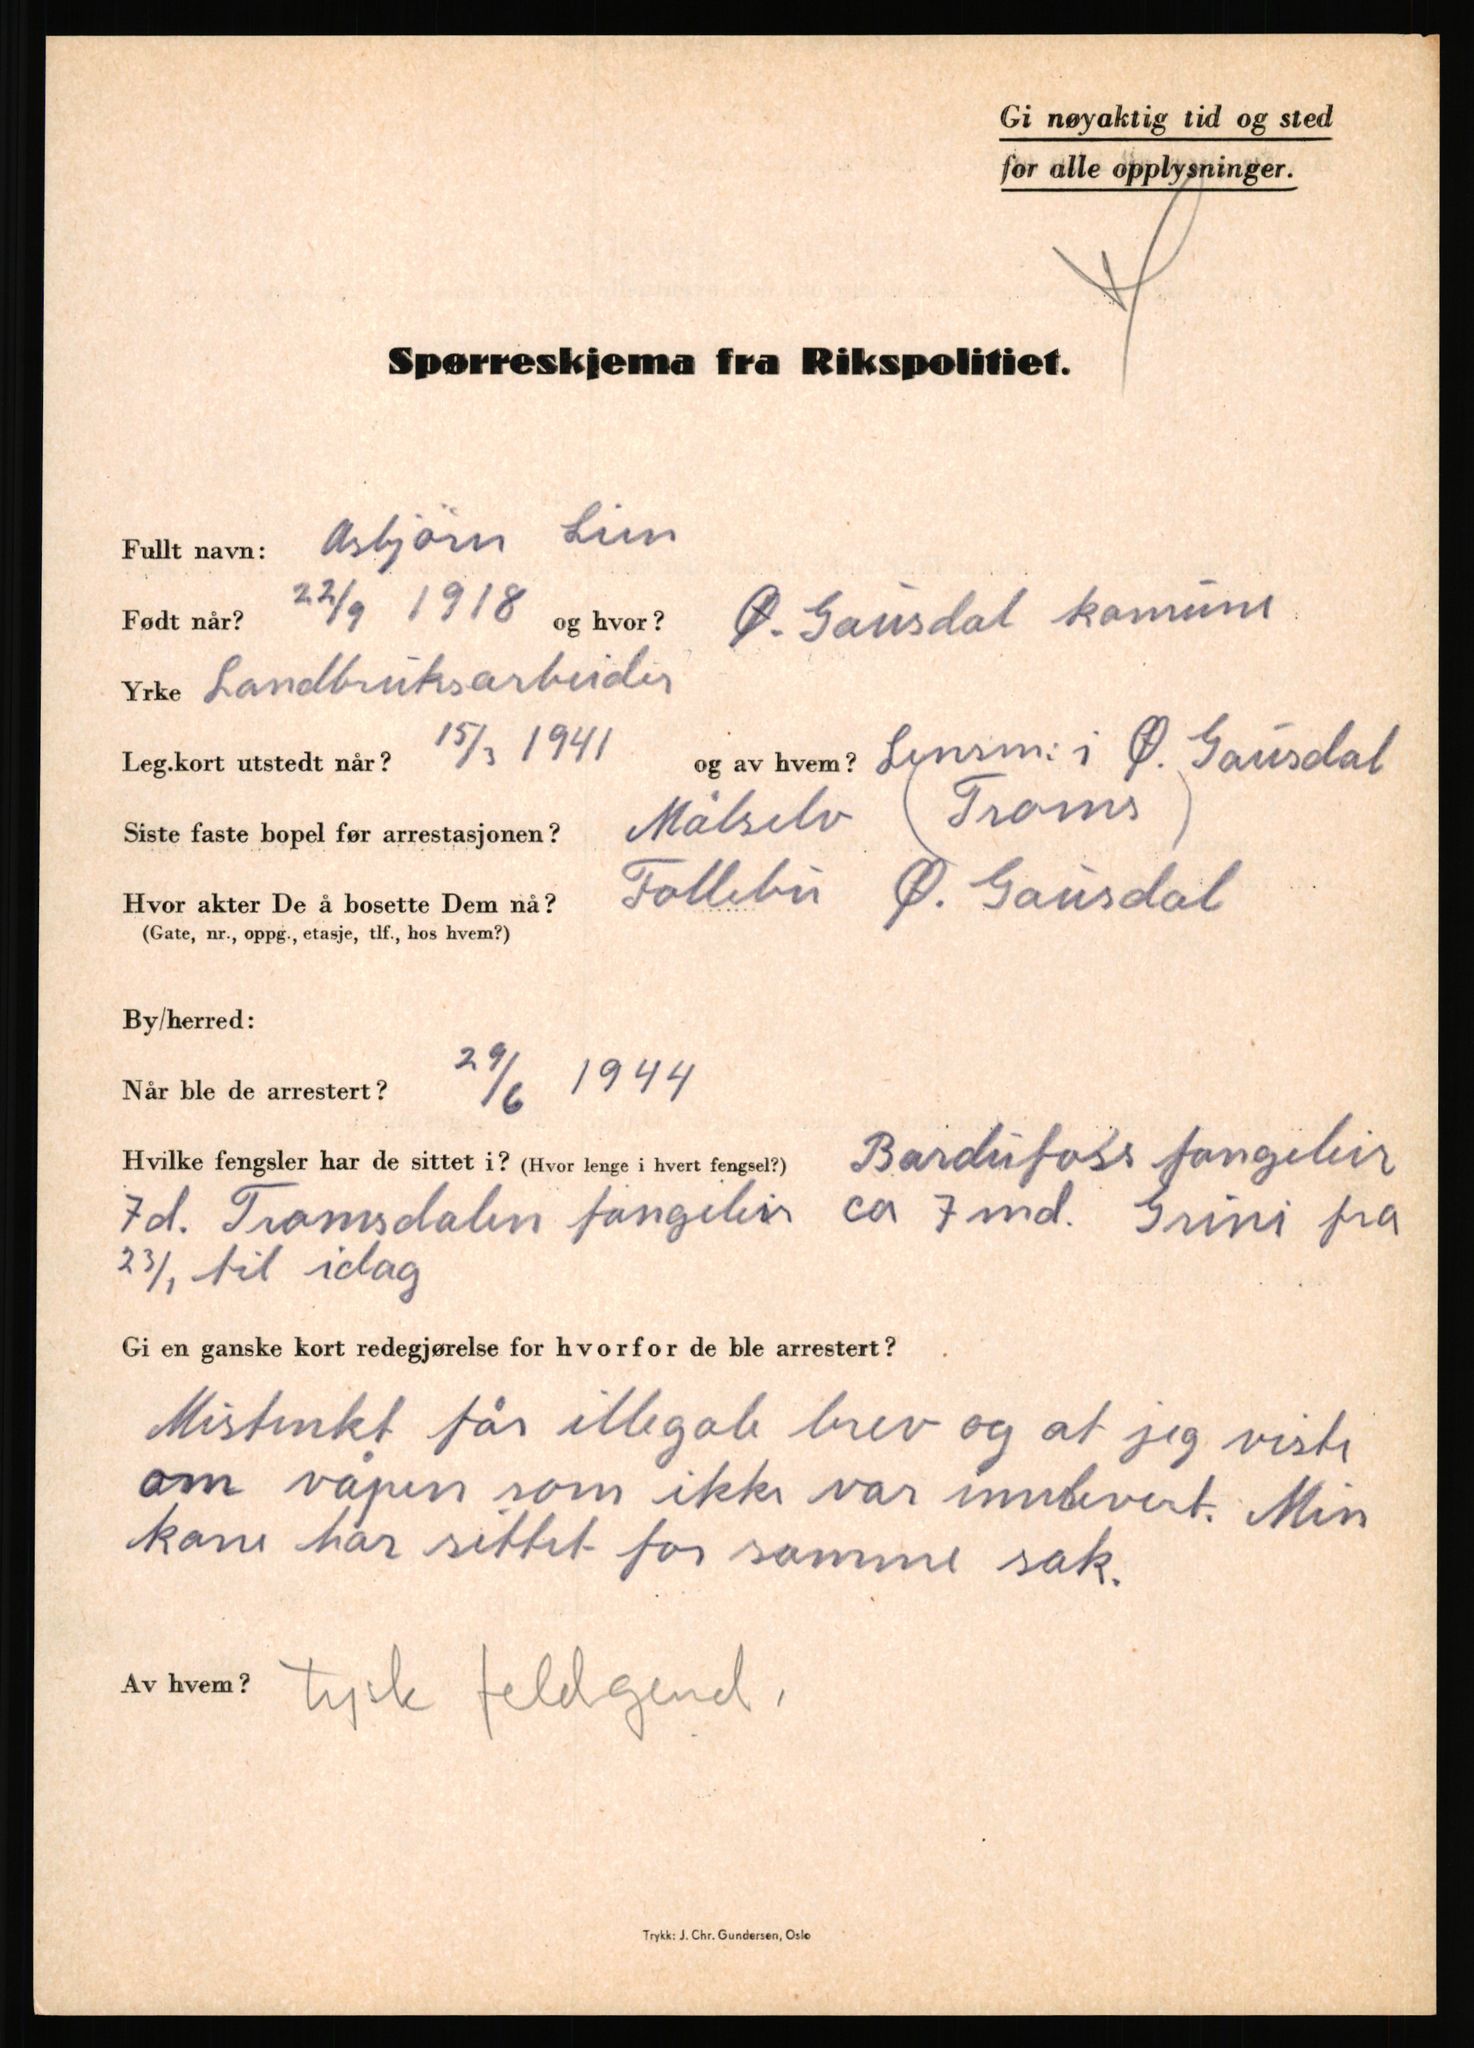 Gi nøyaktig tid og sted
for alle opplysninger.
Spørreskjema fra Rikspolitiet.
Fullt navn: Asbjörn Lien
Født når? 22/9 1918 og hvor? Ø. Gausdal komune
Yrke Landbruksarbeider
Leg.kort utstedt når? 15/3 1941 og av hvem? Lensm: i Ø. Gausdal
Siste faste bopel før arrestasjonen? Målselv (Troms)
Hvor akter De å bosette Dem nå? Follebu Ø. Gausdal
(Gate, nr., oppg., etasje, tlf., hos hvem?)
By/herred:
Når ble de arrestert? 29/6 1944
Hvilke fengsler har de sittet i? (Hvor lenge i hvert fengsel?) Bardufoss fangeleir
7d. Tromsdalen fangeleir ca 7 md. Grini fra
23/1 til idag
Gi en ganske kort redegjørelse for hvorfor de ble arrestert?
Mistenkt får illegale brev og at jeg viste
om våpen som ikke var innlevert. Min
kone har sittet for samme sak.
Av hvem? tysk feldgend.
Trykk: J. Chr. Gundersen, Oslo